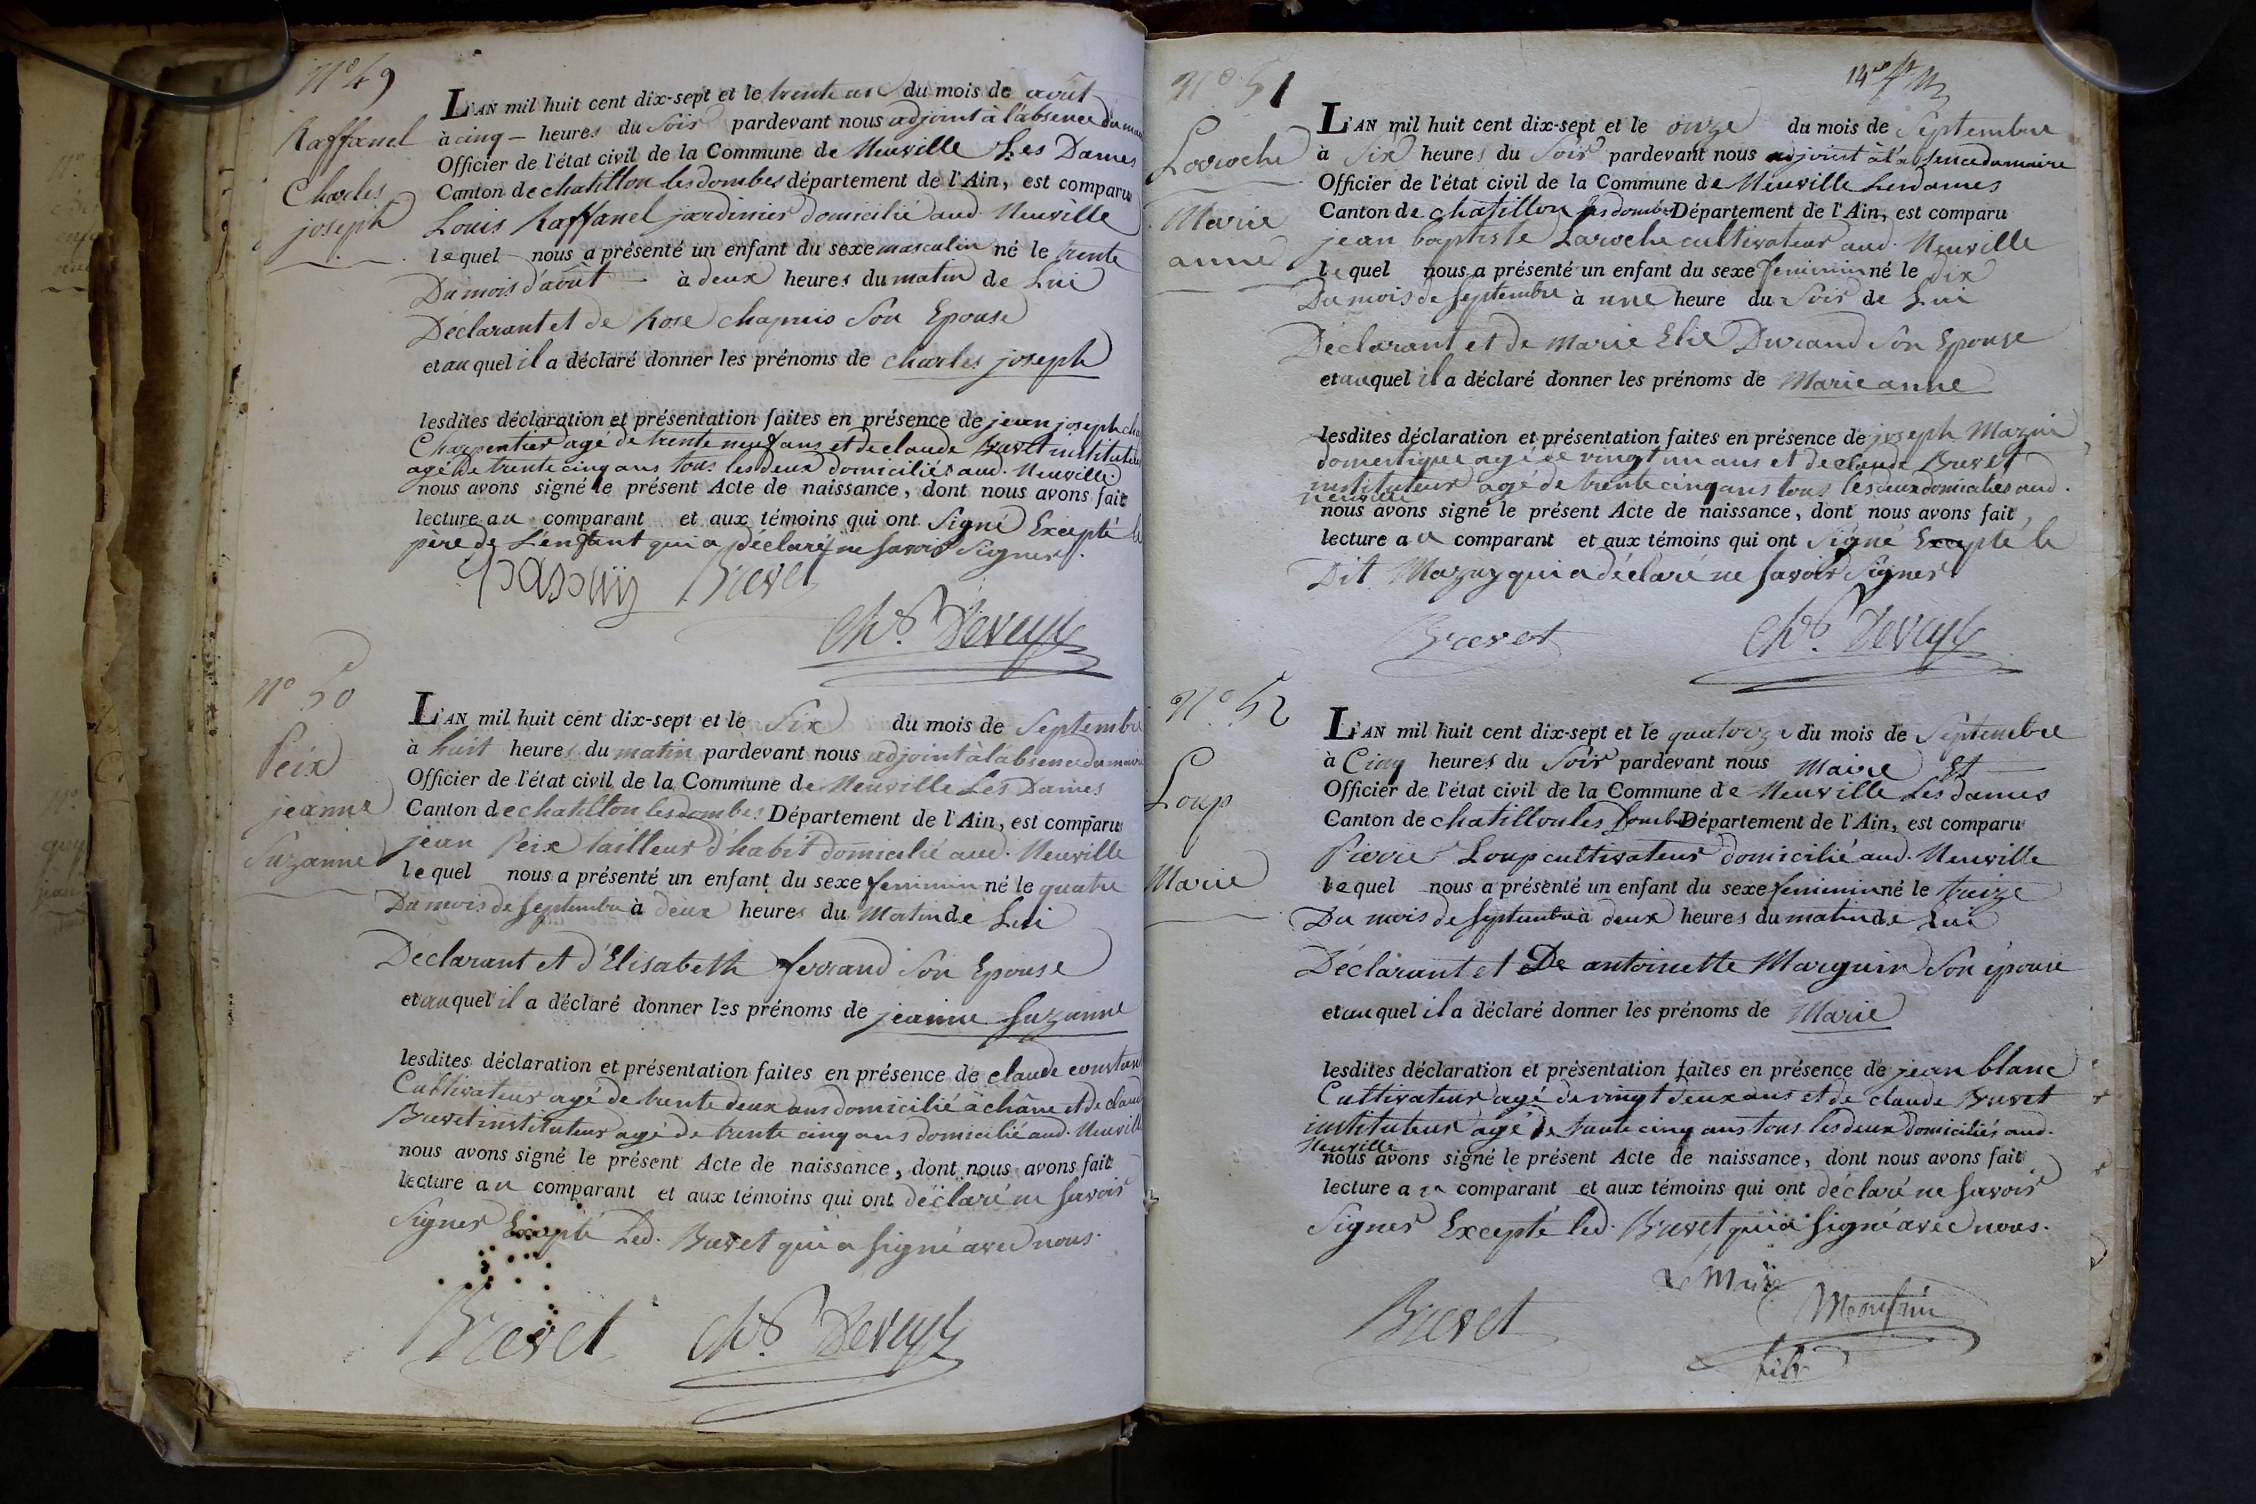 N° 49
Raffanel
Charles
joseph
L'AN mil huit cent dix-sept et le trente un du mois de aout
à cinq heures du Soir pardevant nous adjoint à l'absence du
Officier de l'état civil de la Commune de Neuville Les Dames
Canton de chatillon les dombes département de l'Ain, est comparu
Louis Raffanel jardinier domicilié aud. Neuville
lequel nous a présenté un enfant du sexe masculin né le trente
Du mois d'août à deux heures du matin de Lui
Déclarant et de Rose chapuis Son Epouse
et auquel il a déclaré donner les prénoms de charles joseph
lesdites déclaration et présentation faites en présence de jean joseph
Charpentier agé de trente neuf ans et de claude Buvet instituteur
agé de trente cinq ans tous les deux domiciliés aud. Neuville
nous avons signé le présent Acte de naissance, dont nous avons fait
lecture au comparant et aux témoins qui ont Signé Excepté le
père de L'enfant qui a déclaré ne Savoir Signer.
Buvet
Ch.s Deveyle
N° 50
Peix
jeanne
Suzanne
L'AN mil huit cent dix-sept et le Six du mois de Septembre
à huit heures du matin pardevant nous adjoint à l'absence du maire
Officier de l'état civil de la Commune de Neuville Les Dames
Canton de chatillon les dombes Département de l'Ain, est comparu
jean Peix tailleur d'habit domicilié aud. Neuville
lequel nous a présenté un enfant du sexe feminin né le quatre
Du mois de Septembre à deux heures du Matin de Lui
Déclarant et d'Elisabeth ferrand Son Epouse
et auquel il a déclaré donner les prénoms de jeanne Suzanne
lesdites déclaration et présentation faites en présence de claude
Cultivateur agé de trente deux ans domicilié à châne et de claude
Buvet instituteur agé de trente cinq ans domicilié aud. Neuville
nous avons signé le présent Acte de naissance, dont nous avons fait
lecture au comparant et aux témoins qui ont déclaré ne Savoir
Signer Excepté Led. Buvet qui a signé avec nous.
Buvet Ch.s Deveyle
N° 51
Laroche
Marie
anne
L'AN mil huit cent dix-sept et le onze du mois de Septembre
à Six heures du Soir pardevant nous adjoint à l'absence du maire
Officier de l'état civil de la Commune de Neuville Les dames
Canton de chatillon les dombes Département de l'Ain, est comparu
jean baptiste Laroche cultivateur aud. Neuville
lequel nous a présenté un enfant du sexe feminin né le dix
Du mois de Septembre à une heure du Soir de Lui
Déclarant et de Marie Elie Durand Son Epouse
et auquel il a déclaré donner les prénoms de Marie anne
lesdites déclaration et présentation faites en présence de joseph Mazui
domestique agé de vingt un ans et de claude Buvet
instituteur agé de trente cinq ans tous les deux domiciliés aud.
Neuville
nous avons signé le présent Acte de naissance, dont nous avons fait
lecture au comparant et aux témoins qui ont Signé Excepté le
Dit Mazuy qui a déclaré ne Savoir Signer.
Buvet Ch.s Deveyle
N° 52
Loup
Marie
L'AN mil huit cent dix-sept et le quatorze du mois de Septembre
à Cinq heures du Soir pardevant nous Maire Et
Officier de l'état civil de la Commune de Neuville Les dames
Canton de chatillon les Dombes Département de l'Ain, est comparu
Pierre Loup cultivateur domicilié aud. Neuville
lequel nous a présenté un enfant du sexe feminin né le treize
Du mois de Septembre à deux heures du matin de Lui
Déclarant et De antoinette Marguin Son épouse
et auquel il a déclaré donner les prénoms de Marie
lesdites déclaration et présentation faites en présence de jean blanc
Cultivateur agé de vingt deux ans et de claude Buvet
instituteur agé de trente cinq ans tous les deux domiciliés aud.
Neuville
nous avons signé le présent Acte de naissance, dont nous avons fait
lecture au comparant et aux témoins qui ont déclaré ne Savoir
Signer Excepté led. Buvet qui a Signé avec nous.
Le Maire
Buvet